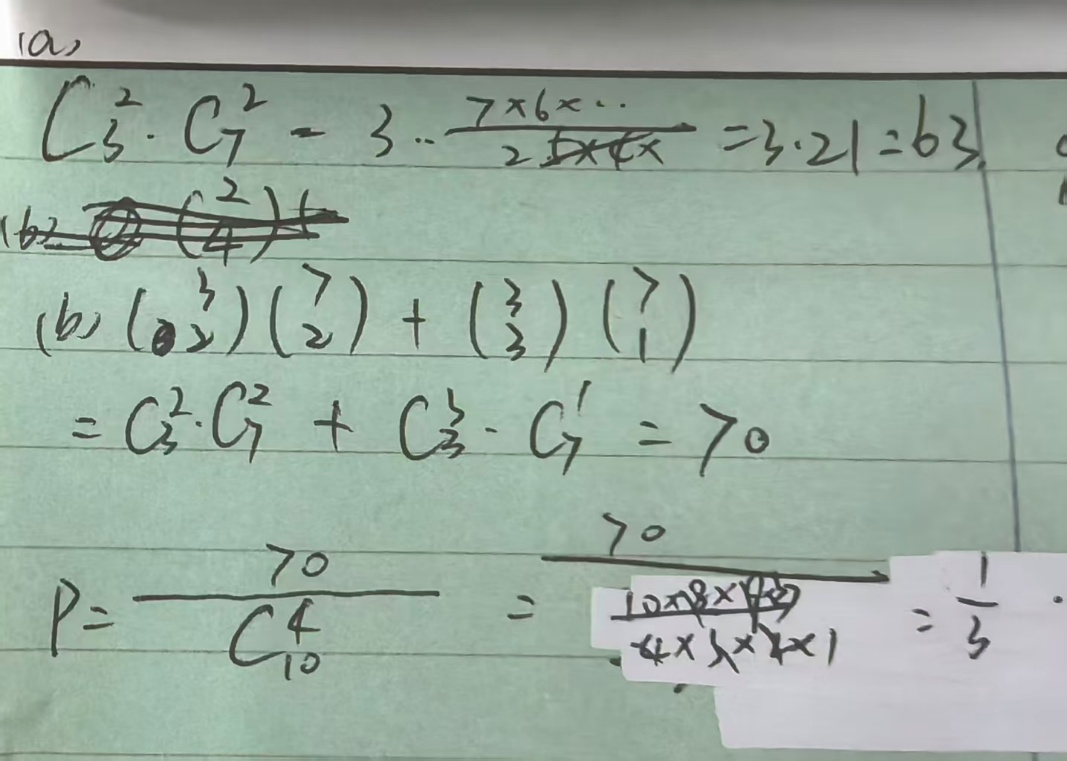 (a)
C₃² · C₇² = 3 ·· 7×6×·· / 2 = 3·21 = 63.
(b)
(b) (3 2)(7 2) + (3 3)(7 1)
= C₃²·C₇² + C₃³·C₇¹ = 70
P = 70 / C₁₀⁴ = 70 / 4×3×2×1 = 1/3 .